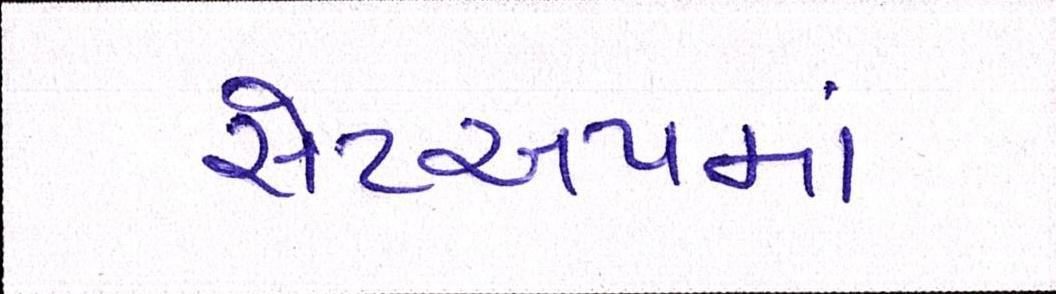 સેટઅપમાં